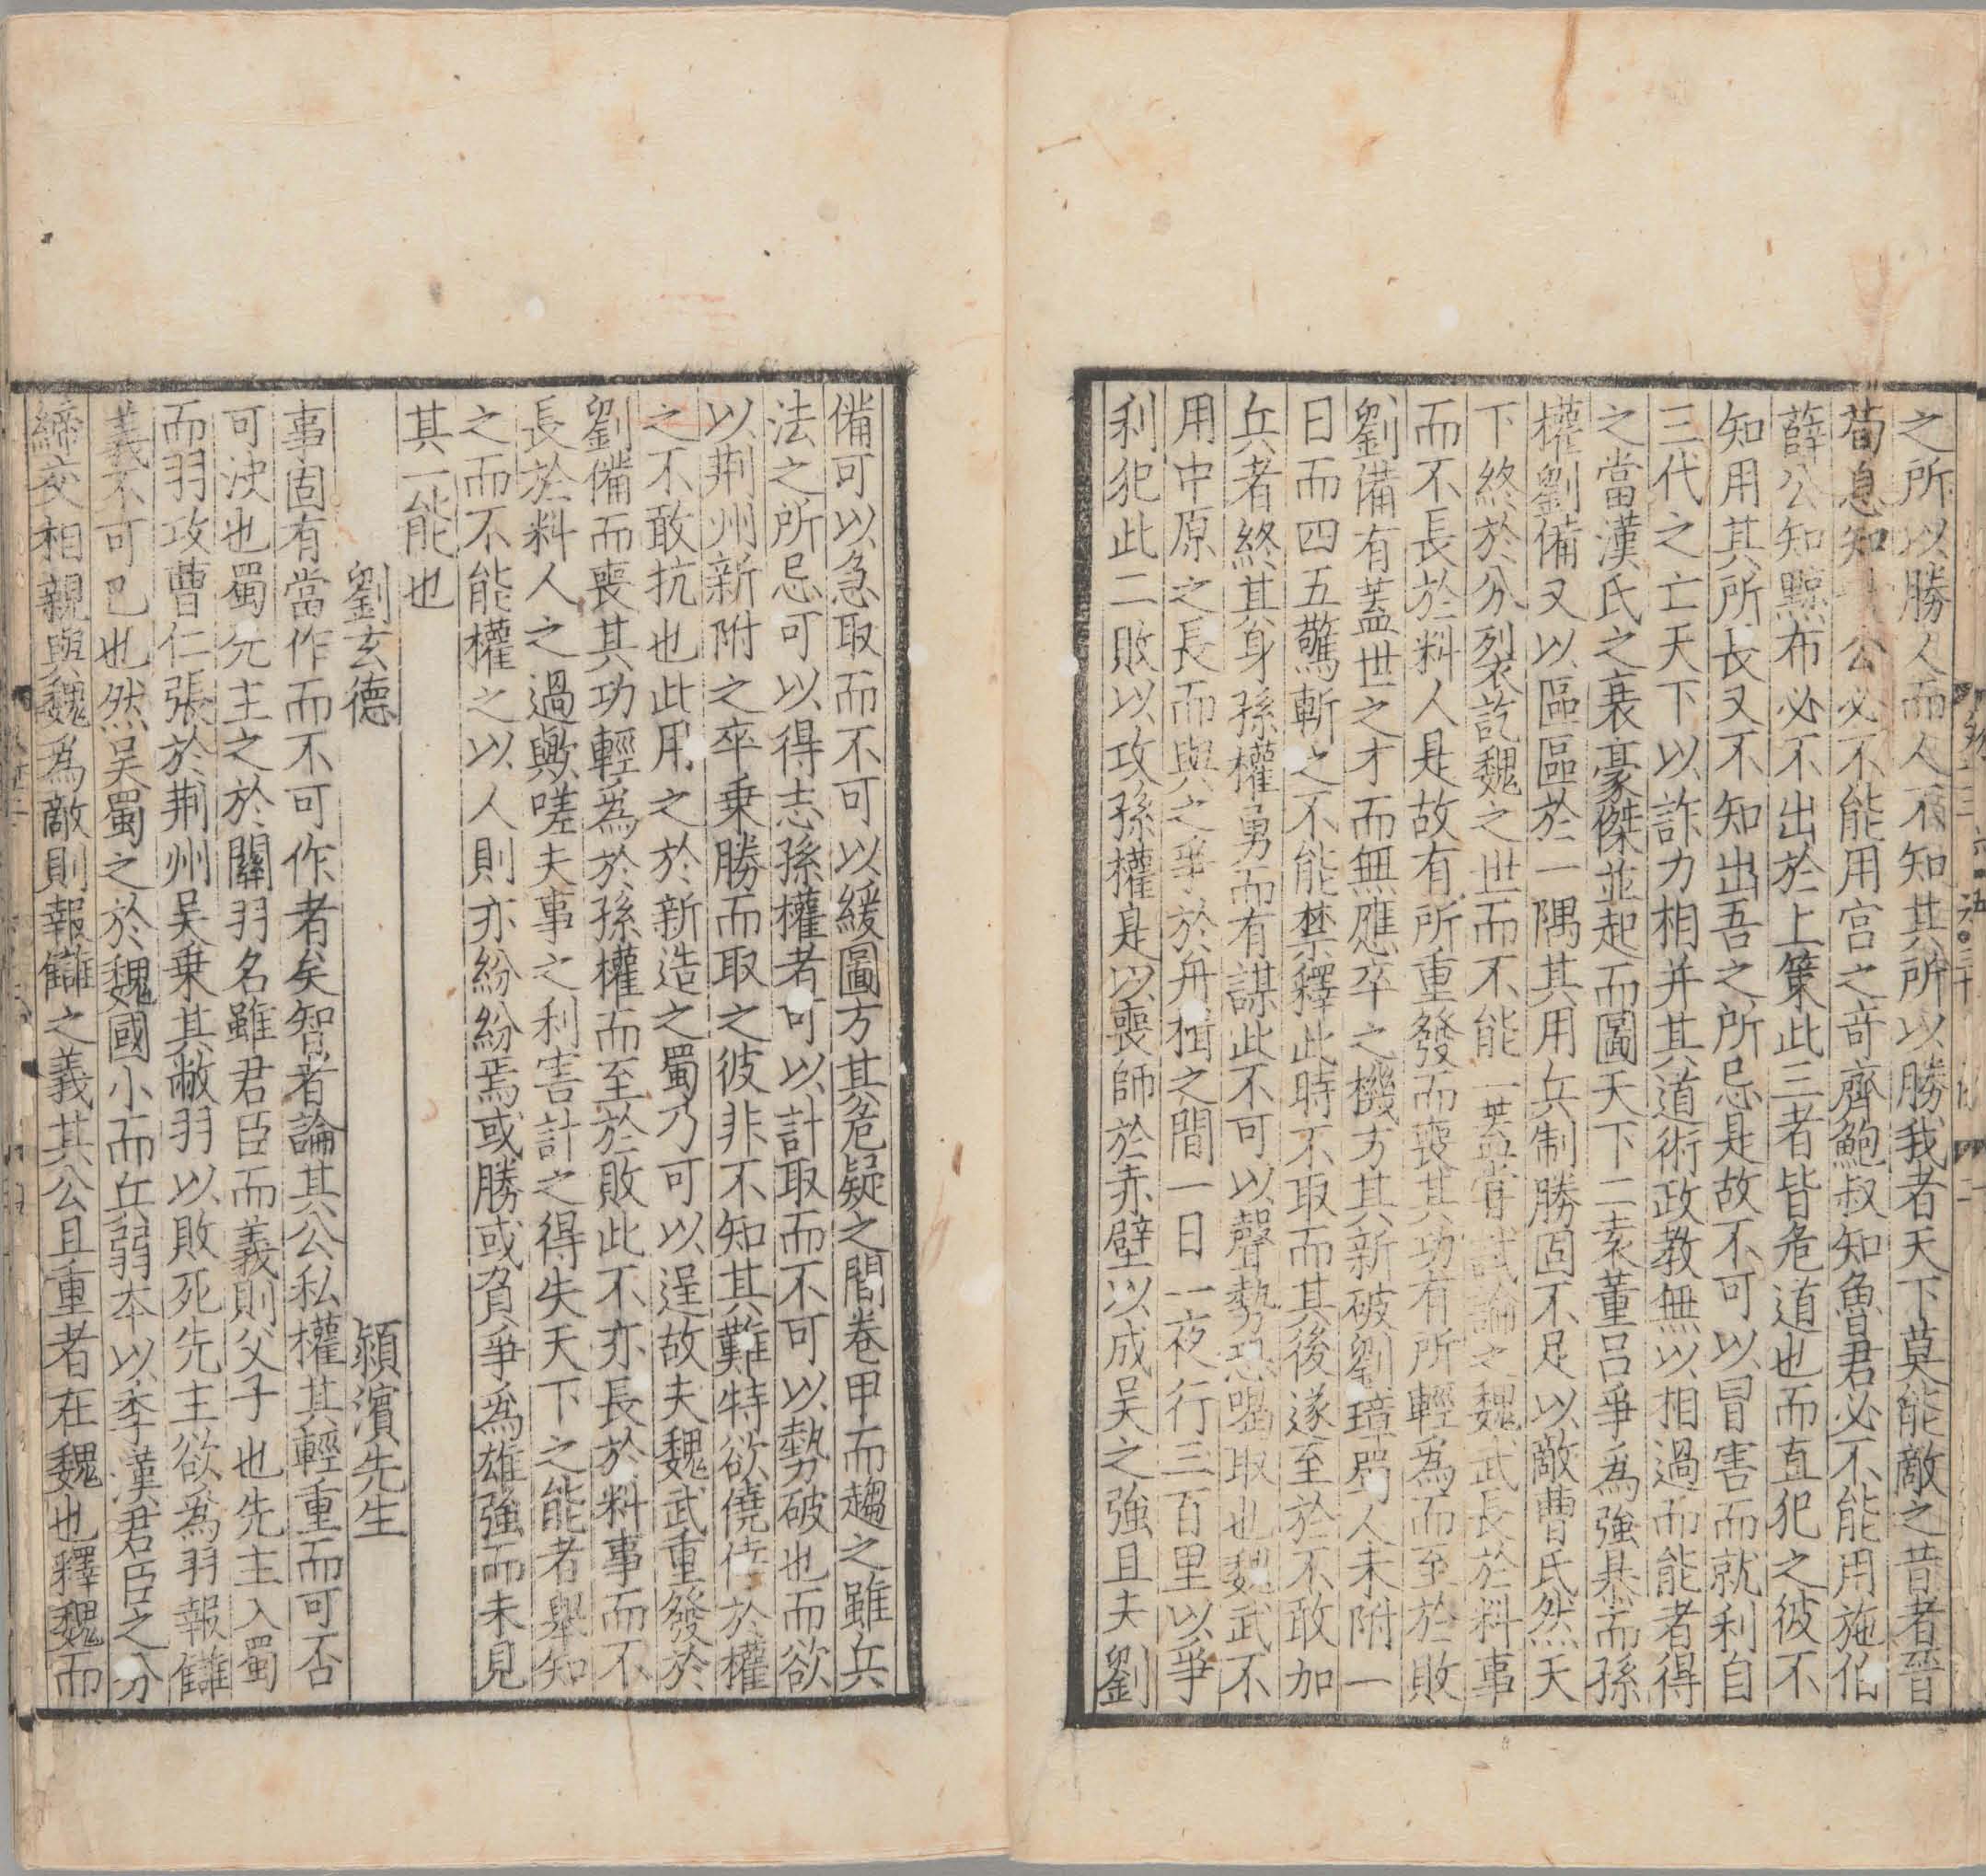 之所以勝人而人不知其所以勝我者天下莫能敵之昔者晉
荀息知公必不能用宮之奇齊鮑叔知魯君必不能用施伯
薛公知黥布必不出於上策此三者皆危道也而直犯之彼不
知用其所長又不知出吾之所忌是故不可以冒害而就利自
三代之亡天下以詐力相并其道術政教無以相過而能者得
之當漢氏之衰豪傑並起而圖天下二袁董呂爭為強暴而孫
權劉備又以區區於一隅其用兵制勝固不足以敵曹氏然天
下終於分裂訖魏之世而不能一甞試論之魏武長於料事
而不長於料人是故有所重發而喪其功有所輕為而至於敗
劉備有蓋世之才而無應卒之機方其新破劉璋蜀人未附一
日而四五驚斬之不能禁釋此時不取而其後遂至於不敢加
兵者終其身孫權勇而有謀此不可以聲勢恐喝取也魏武不
用中原之長而與之爭於舟楫之間一日一夜行三百里以爭
利犯此二敗以攻孫權是以喪師於赤壁以成吳之強且夫劉
備可以急取而不可以緩圖方其危疑之間卷甲而趨之雖兵
法之所忌可以得志孫權者可以計取而不可以勢破也而欲
以荊州新附之卒乗勝而取之彼非不知其難特欲僥倖於權
之不敢抗也此用之於新造之蜀乃可以逞故夫魏武重發於
劉備而喪其功輕為於孫權而至於敗此不亦長於料事而不
長於料人之過歟嗟夫事之利害計之得失天下之能者舉知
之而不能權之以人則亦紛紛焉或勝或負爭為雄強而未見
其一能也
劉玄德　潁濱先生
事固有當作而不可作者矣智者論其公私權其輕重而可否
可決也蜀先主之於關羽名雖君臣而義則父子也先主入蜀
而羽攻曹仁張於荊州吳乗其敝羽以敗死先主欲為羽報讎
義不可已也然吳蜀之於魏國小而兵弱本以季漢君臣之分
締交相親與魏為敵則報讎之義其公且重者在魏也釋魏而